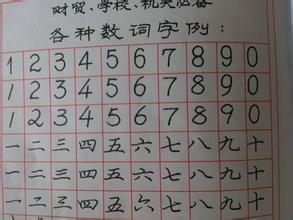 财贸、学校、机关必备
各种数词字例:
1 2 3 4 5 6 7 8 9 0
1 2 3 4 5 6 7 8 9 0
1 2 3 4 5 6 7 8 9 0
一 二 三 四 五 六 七 八 九 十
一 二 三 四 五 六 七 八 九 十
一 二 三 四 五 六 七 八 九 十